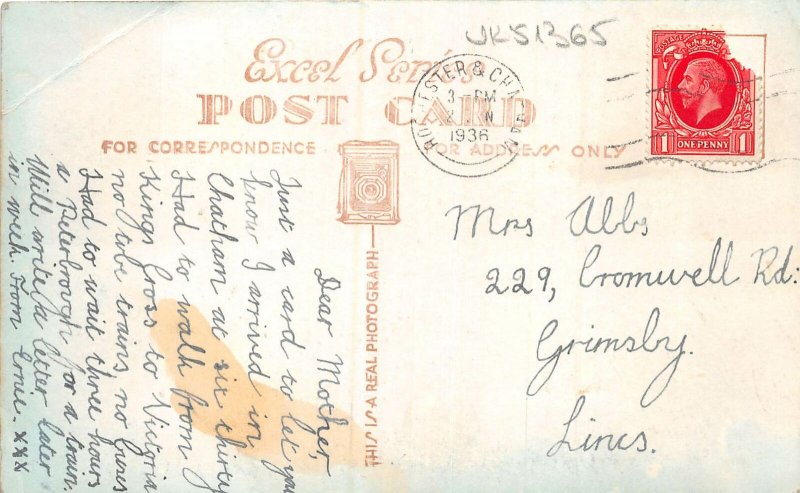 UK51365
Excel Series
POST CARD
FOR CORRESPONDENCE
FOR ADDRESS ONLY
THIS IS A REAL PHOTOGRAPH
ROCHESTER & CHATHAM
3 - PM
1936
POSTAGE
1 ONE PENNY 1
Dear Mother,
Just a card to let you
know I arrived in
Chatham at six thirty
Had to walk from
Kings Cross to Victoria
no tube trains, no buses
Had to wait three hours
a Peterbrough for a train.
Will write a letter later
in week. From Ernie. xxx
Mrs Abbs
229, Cromwell Rd:
Grimsby.
Lincs.